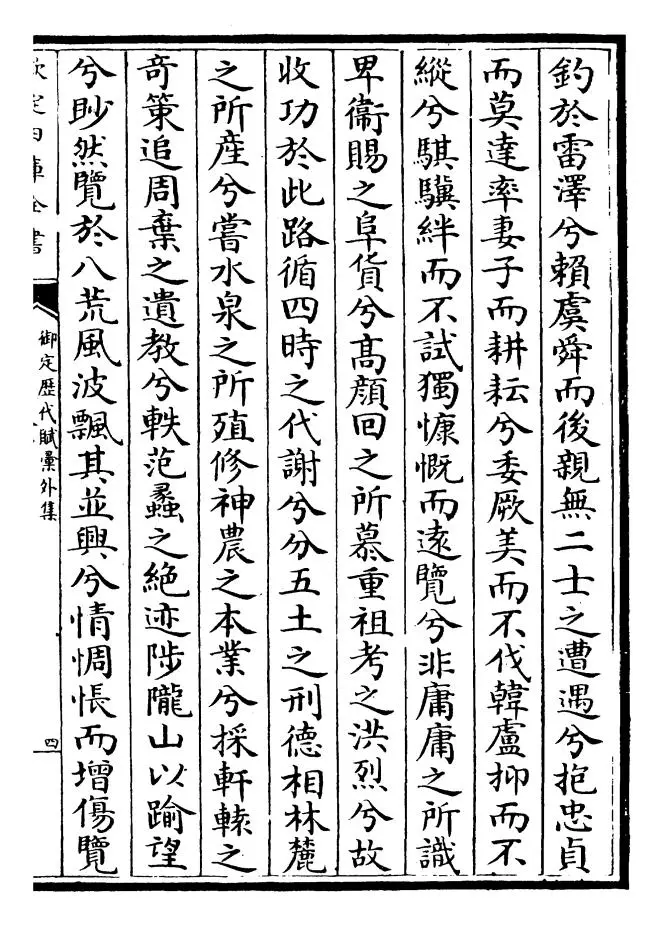 釣於雷澤兮賴虞舜而後親無二士之遭遇兮抱忠貞
而莫達率妻子而耕耘兮委厥美而不伐韓盧抑而不
縱兮騏驥絆而不試獨慷慨而遠覽兮非庸庸之所識
卑衞賜之阜貨兮髙顔回之所慕重祖考之洪烈兮故
收功於此路循四時之代謝兮分五土之刑德相林麓
之所産兮嘗水泉之所殖修神農之本業兮採軒轅之
奇策追周棄之遺教兮軼范蠡之絶迹陟隴山以踰望
兮眇然覽於八荒風波飄其並興兮情惆悵而增傷覽
欽定四庫全書
御定歴代賦彚外集
四